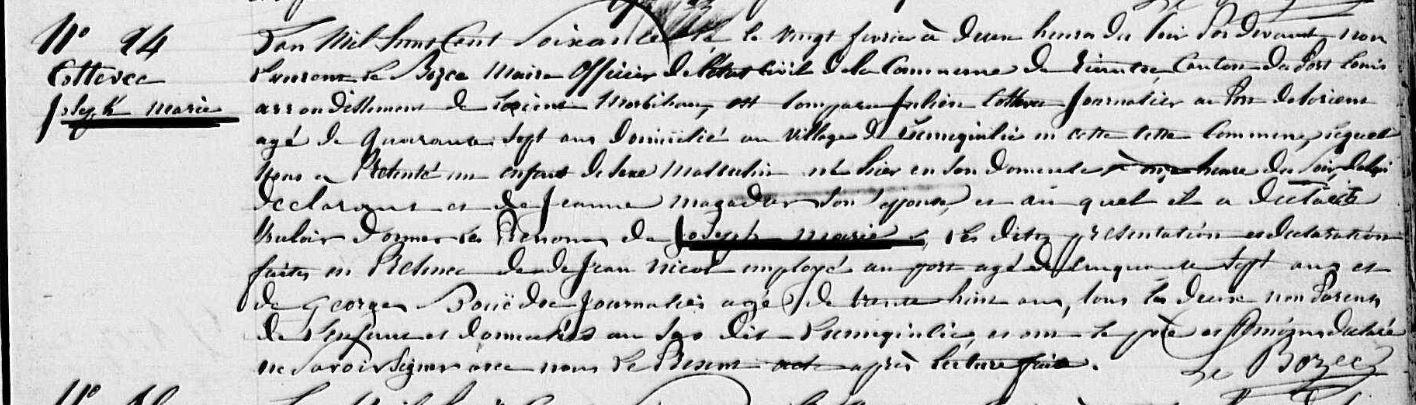 N° 14
Cotterec
Joseph Marie
L'an Mil huit Cent Soixante le vingt fevrier à deux heures du Soir Par devant nous
Le Bozec Maire Officier de l'état Civil de la Commune de Riantec Canton du Port Louis
arrondissement de Lorient Morbihan, est Comparu Julien Cotterec Journalier au Port de Lorient
agé de Quarante Sept ans domicilié au village de en cette Commune, lequel
Nous a Présenté un enfant de Sexe Masculin né hier en Son domicile à onze heure du Soir de lui
déclarant et de Jeanne Magadur Son épouse, et au quel il a déclaré
Vouloir donner les Prénoms de Joseph Marie, les dites présentation et déclaration
faites en Présence de Jean Nicol employé au port agé de Cinquante Sept ans et
de George Journalier agé de trente huit ans, tous les deux non Parents
de l'enfant et domiciliés au dit et ont le père et témoins déclaré
ne Savoir Signer avec nous le Présent acte après lecture faite.
Le Bozec
N°